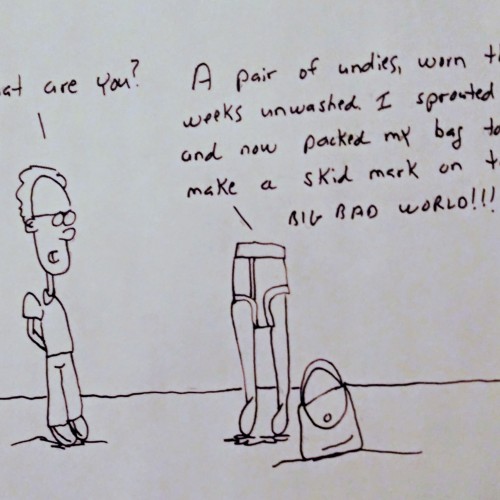 at are you?
A pair of undies, worn
weeks unwashed. I sprouted
and now packed my bag to
make a skid mark on
BIG BAD WORLD!!!